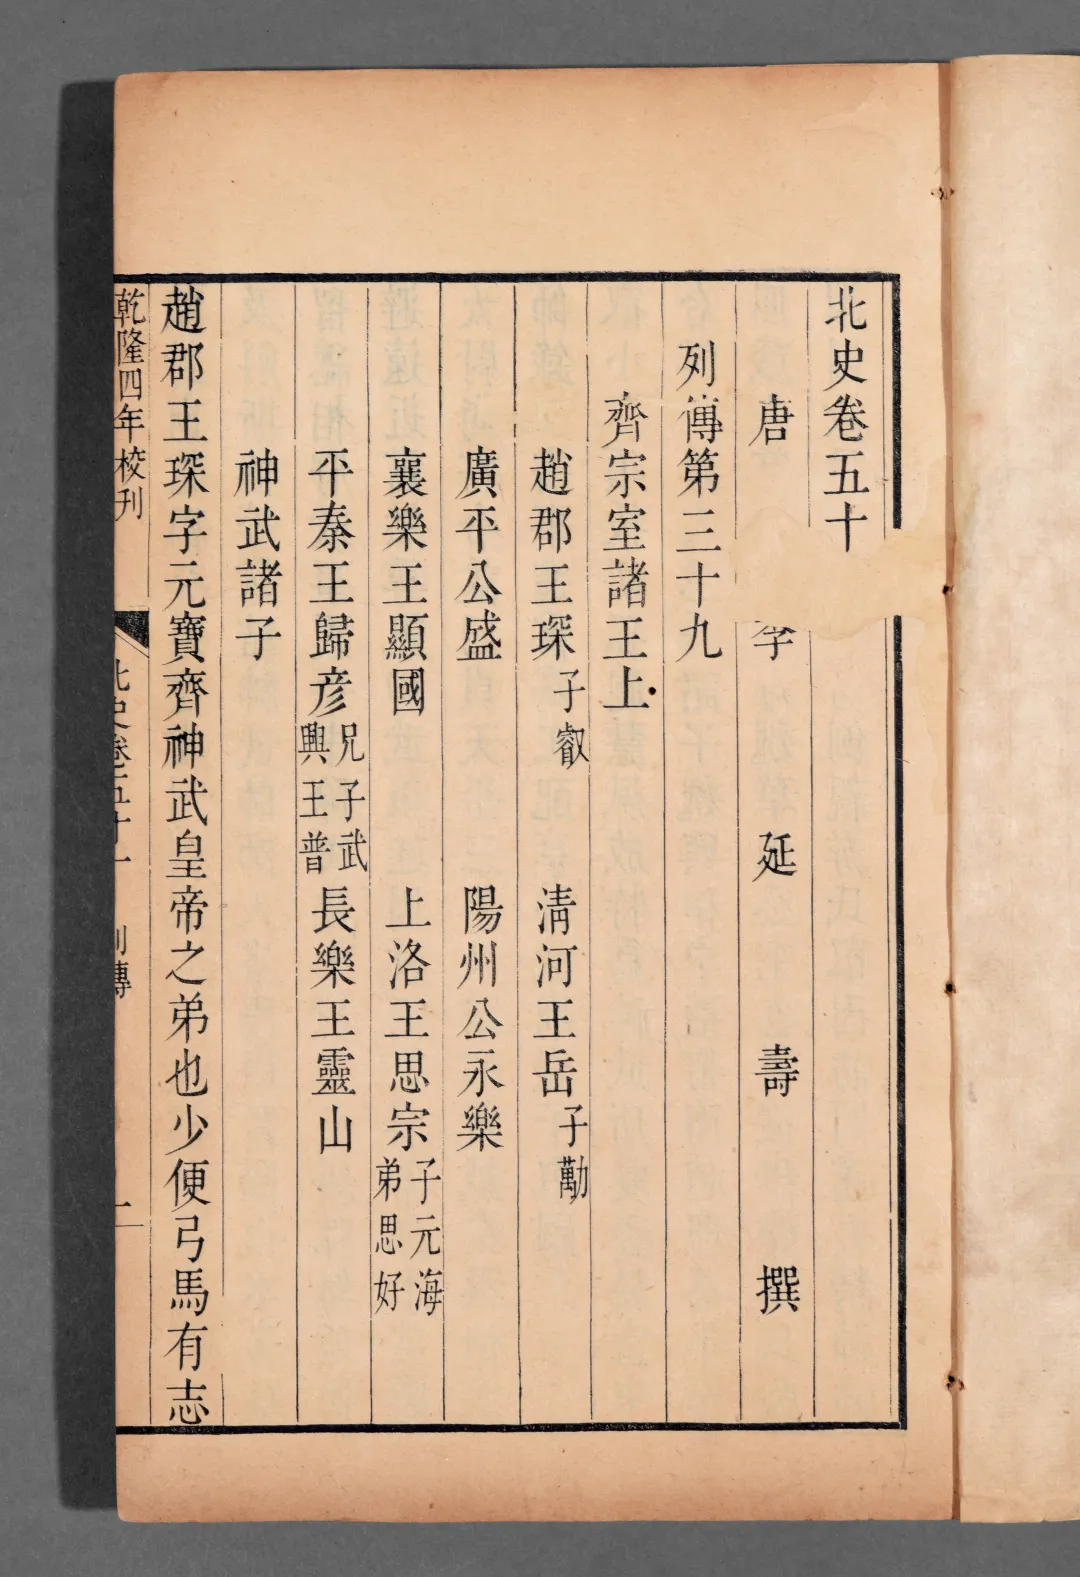 北史卷五十
唐 李 延 壽 撰
列傳第三十九
齊宗室諸王上
趙郡王琛子叡 清河王岳子勱
廣平公盛 陽州公永樂
襄樂王顯國 上洛王思宗子元海弟思好
平秦王歸彦兄子武興王普 長樂王靈山
神武諸子
趙郡王琛字元寶齊神武皇帝之弟也少便弓馬有志
乾隆四年校刊 北史卷五十一 列傳 一